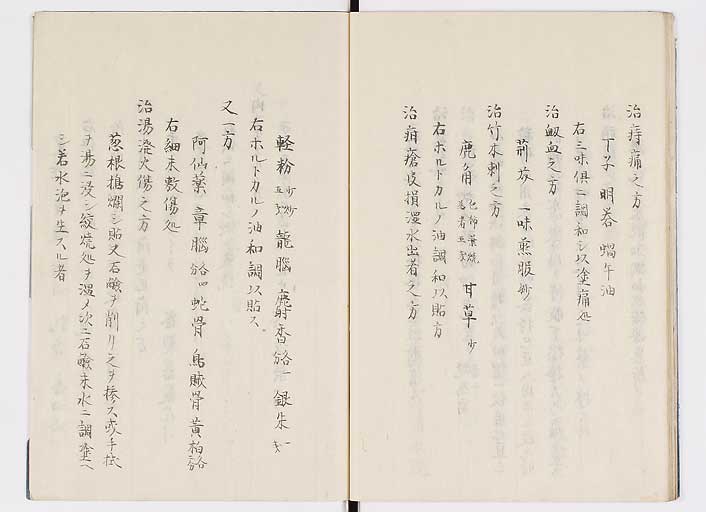 治痔痛之方
丁子 明礬 蝸牛油
右三味俱ニ調和シ以塗痛処
治衂血之方
荊芥 一味煎服妙
治竹木刺之方
鹿角 甘草 少
右ホルトカルノ油調和以貼方
治疳瘡皮損湿水出者之方
軽粉 龍腦 麝香 銀朱
右ホルトカルノ油和調以貼ス
又一方
阿仙薬 章腦 蛇骨 烏賊骨 黄柏
右細末敷傷処
治湯潑火傷之方
葱根搗爛シ貼又石鹸ヲ削リ之ヲ摻ス或手拭
ヲ湯ニ浸シ絞焼処ヲ温メ次ニ石鹸末水ニ調塗ヘ
シ若水泡ヲ生スル者